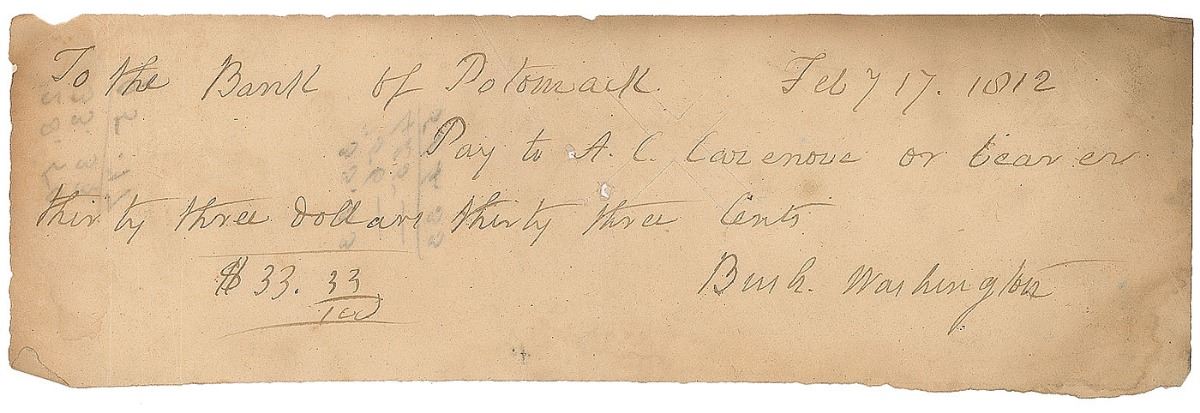 To the Bank of Potomack Feby 17. 1812
Pay to A. C. Cazenove or bearer
thirty three dollars thirty three Cents
$ 33. 33/100
Bush. Washington